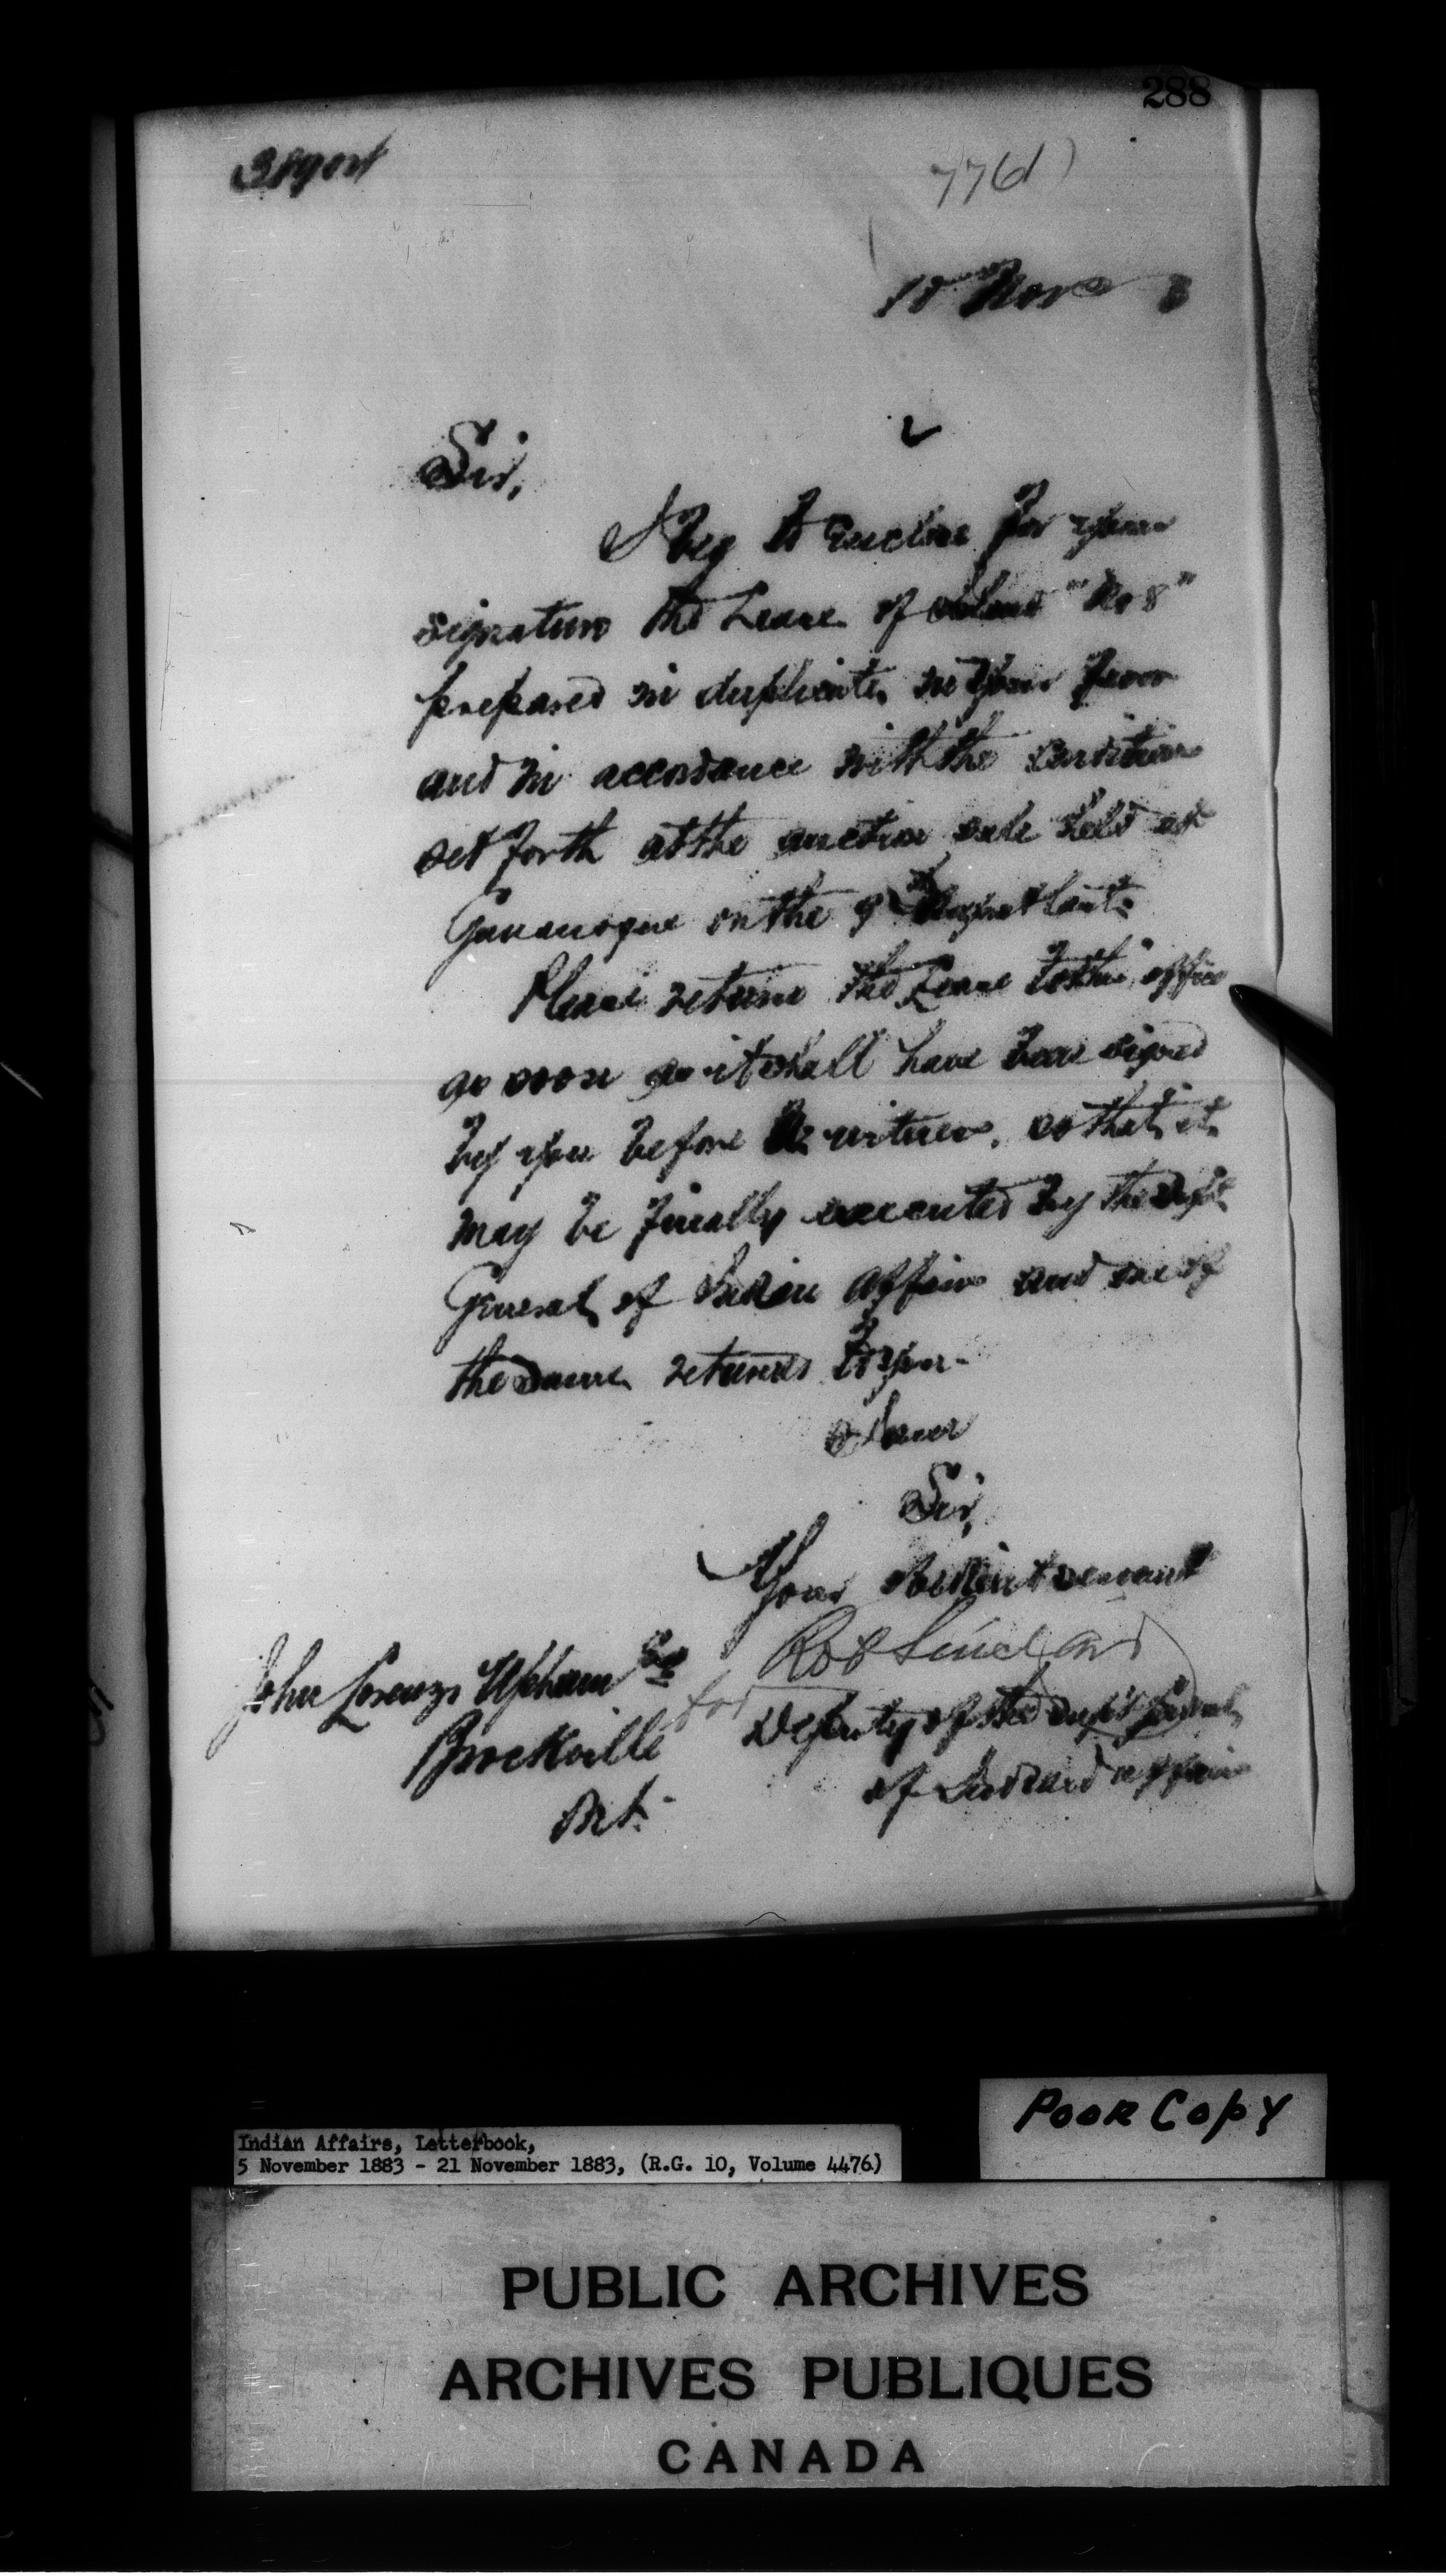 288
776
10 Nov 3
Sir,
I beg to enclose for your
signature the Lease of Island "No 8"
prepared in duplicate, in your favor
and in accordance with the conditions
set forth at the auction sale held at
Gananoque on the 9 August last.
Please return the Lease to this office
as soon as it shall have been signed
by you before a witness, so that it
may be finally executed by the Supt
General of Indian Affairs and one of
the same returned to you.
I have
Sir,
Your obedient servant
Rob Sinclair
John Lorenzo Upham Esq
for Deputy of the Supt General
Brockville
of Indian Affairs
Ont.
Poor Copy
Indian Affairs, Letterbook,
5 November 1883 - 21 November 1883, (R.G. 10, Volume 4476)
PUBLIC ARCHIVES
ARCHIVES PUBLIQUES
CANADA